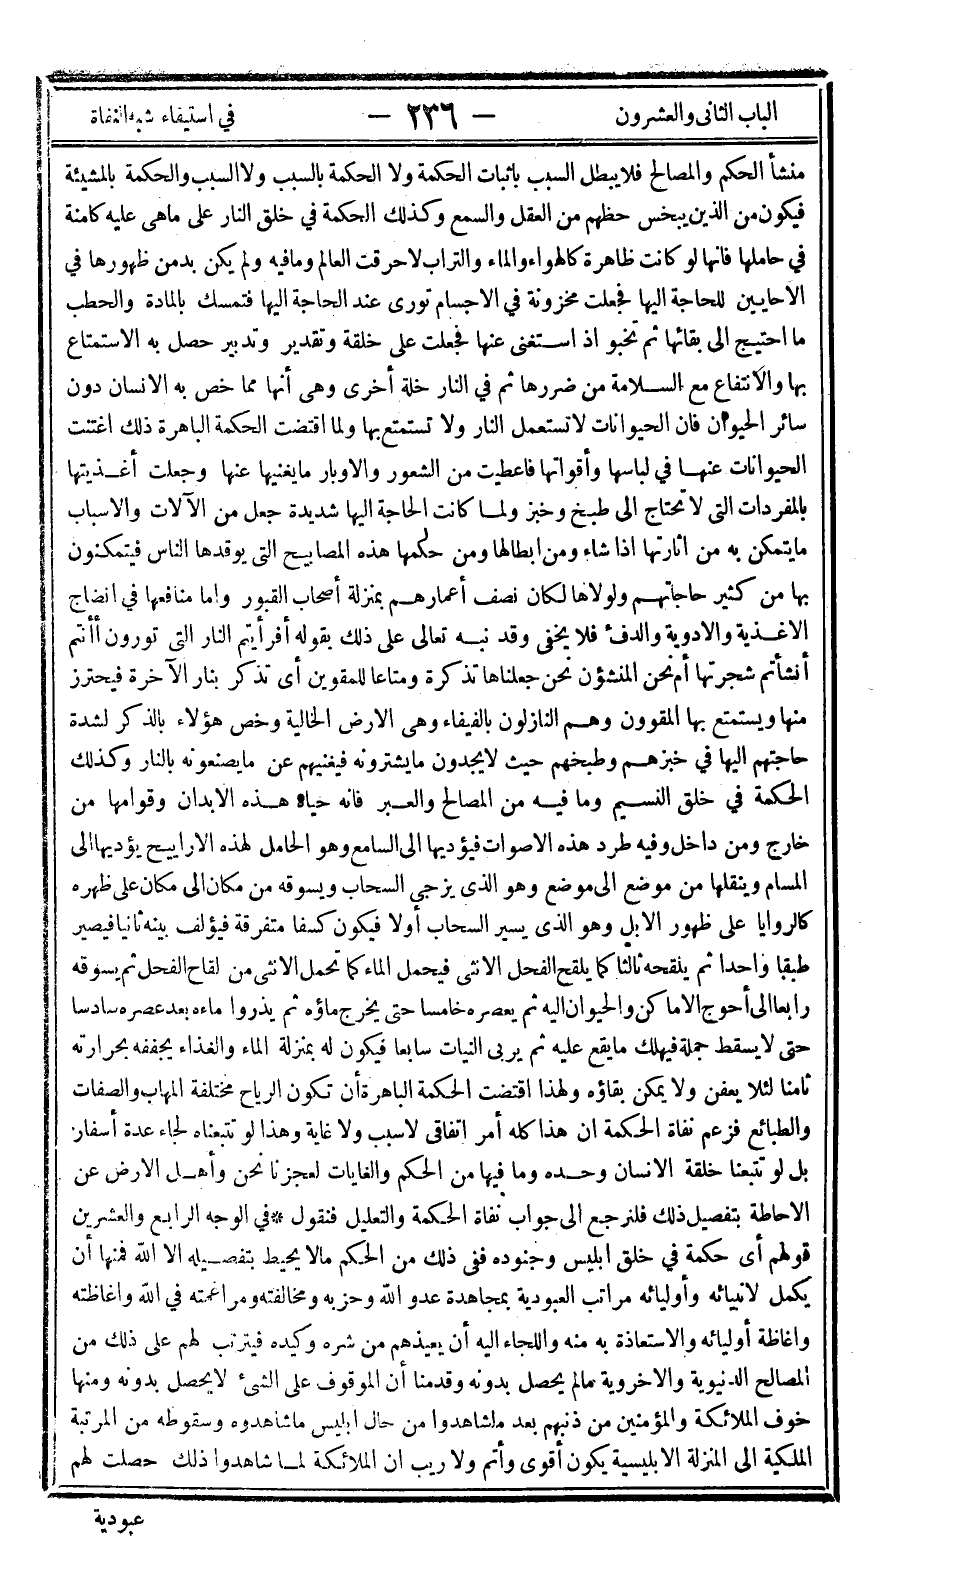 الباب الثانى والعشرون — ٢٣٦ — في استيفاء شبه النفاة
منشأ الحكم والمصالح فلا يبطل السبب باثبات الحكمة ولا الحكمة بالسبب ولا السبب والحكمة بالمشيئة
فيكون من الذين يبخس حظهم من العقل والسمع وكذلك الحكمة في خلق النار على ماهى عليه كامنة
في حاملها فانها لو كانت ظاهرة كالهواء والماء والتراب لاحرقت العالم ومافيه ولم يكن بد من ظهورها في
الاحايين للحاجة اليها فجعلت مخزونة في الاجسام تورى عند الحاجة اليها فتمسك بالمادة والحطب
ما احتيج الى بقائها ثم تخبو اذ استغنى عنها فجعلت على خلقة وتقدير وتدبير حصل به الاستمتاع
بها والانتفاع مع السلامة من ضررها ثم في النار خلة أخرى وهى أنها مما خص به الانسان دون
سائر الحيوان فان الحيوانات لاتستعمل النار ولا تستمتع بها ولما اقتضت الحكمة الباهرة ذلك اغتنت
الحيوانات عنها في لباسها وأقواتها فاعطيت من الشعور والاوبار مايغنيها عنها وجعلت أغذيتها
بالمفردات التى لا تحتاج الى طبخ وخبز ولما كانت الحاجة اليها شديدة جعل من الآلات والاسباب
مايتمكن به من اثارتها اذا شاء ومن ابطالها ومن حكمها هذه المصابيح التى يوقدها الناس فيتمكنون
بها من كثير حاجاتهم ولولاها لكان نصف أعمارهم بمنزلة أصحاب القبور واما منافعها في انضاج
الاغذية والادوية والدفء فلا يخفى وقد نبه تعالى على ذلك بقوله أفرأيتم النار التى تورون أأنتم
أنشأتم شجرتها أم نحن المنشؤن نحن جعلناها تذكرة ومتاعا للمقوين أى تذكر بنار الآخرة فيحترز
منها ويستمتع بها المقوون وهم النازلون بالفيفاء وهى الارض الخالية وخص هؤلاء بالذكر لشدة
حاجتهم اليها في خبزهم وطبخهم حيث لايجدون مايشترونه فيغنيهم عن مايصنعونه بالنار وكذلك
الحكمة في خلق النسيم وما فيه من المصالح والعبر فانه حياة هذه الابدان وقوامها من
خارج ومن داخل وفيه طرد هذه الاصوات فيؤديها الى السامع وهو الحامل لهذه الاراييح يؤديها الى
المسام وينقلها من موضع الى موضع وهو الذى يزجي السحاب ويسوقه من مكان الى مكان على ظهره
كالروايا على ظهور الابل وهو الذى يسير السحاب أولا فيكون كسفا متفرقة فيؤلف بينه ثانيا فيصير
طبقا واحدا ثم يلقحه ثالثا كما يلقح الفحل الانثى فيحمل الماء كما تحمل الانثى من لقاح الفحل ثم يسوقه
رابعا الى أحوج الاماكن والحيوان اليه ثم يعصره خامسا حتى يخرج ماؤه ثم يذروا ماءه بعد عصره سادسا
حتى لا يسقط جملة فيهلك مايقع عليه ثم يربى النبات سابعا فيكون له بمنزلة الماء والغذاء يجففه بحرارته
ثامنا لئلا يعفن ولا يمكن بقاؤه ولهذا اقتضت الحكمة الباهرة أن تكون الرياح مختلفة المهاب والصفات
والطبائع فزعم نفاة الحكمة ان هذا كله أمر اتفاقى لاسبب ولا غاية وهذا لو تتبعناه لجاء عدة أسفار
بل لو تتبعنا خلقة الانسان وحده وما فيها من الحكم والغايات لعجزنا نحن وأهل الارض عن
الاحاطة بتفصيل ذلك فلنرجع الى جواب نفاة الحكمة والتعليل فنقول * في الوجه الرابع والعشرين
قولهم أى حكمة في خلق ابليس وجنوده ففى ذلك من الحكم مالا يحيط بتفصيله الا الله فمنها أن
يكمل لانبيائه وأوليائه مراتب العبودية بمجاهدة عدو الله وحزبه ومخالفته ومراغمته في الله واغاظته
واغاظة أوليائه والاستعاذة به منه واللجاء اليه أن يعيذهم من شره وكيده فيترتب لهم على ذلك من
المصالح الدنيوية والاخروية مالم يحصل بدونه وقدمنا أن الموقوف على الشئ لايحصل بدونه ومنها
خوف الملائكة والمؤمنين من ذنبهم بعد ماشاهدوا من حال ابليس ماشاهدوه وسقوطه من المرتبة
الملكية الى المنزلة الابليسية يكون أقوى وأتم ولا ريب ان الملائكة لما شاهدوا ذلك حصلت لهم
عبودية